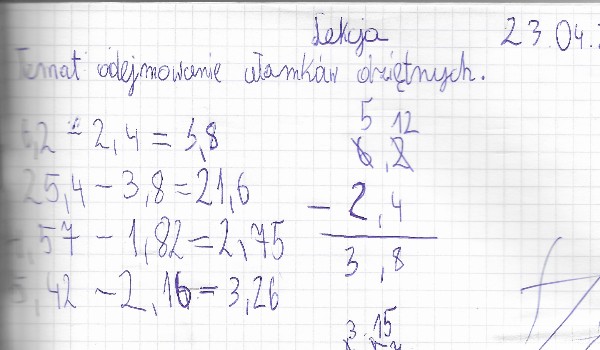 Lekcja 23.04.
Temat odejmowanie ułamków dziętnych.
6,2 - 2,4 = 3,8
25,4 - 3,8 = 21,6
,57 - 1,82 = 2,75
5,42 - 2,16 = 3,26
5 12
6,2
- 2,4
3,8
3 15